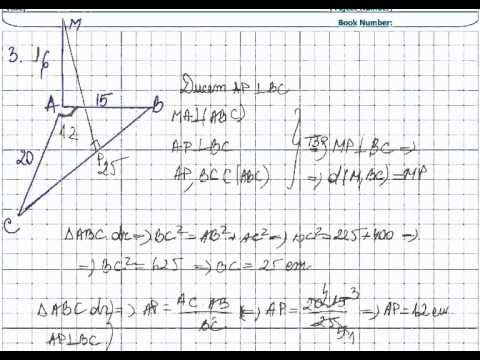 Book Number:
M
3. 16
A 15 B
12
20
P 25
C
Ducem AP⊥BC
MA⊥(ABC)
AP⊥BC
AP, BC ⊂ (ABC)
MP⊥BC ⇒
⇒ d(M,BC)=MP
ΔABC dr ⇒ BC²=AB²+AC² ⇒ BC²=225+400 ⇒
⇒ BC²=625 ⇒ BC=25cm
ΔABC dr
AP⊥BC } ⇒ AP = AC AB / BC ⇒ AP = 20⁴ 15³ / 25 ⇒ AP=12cm